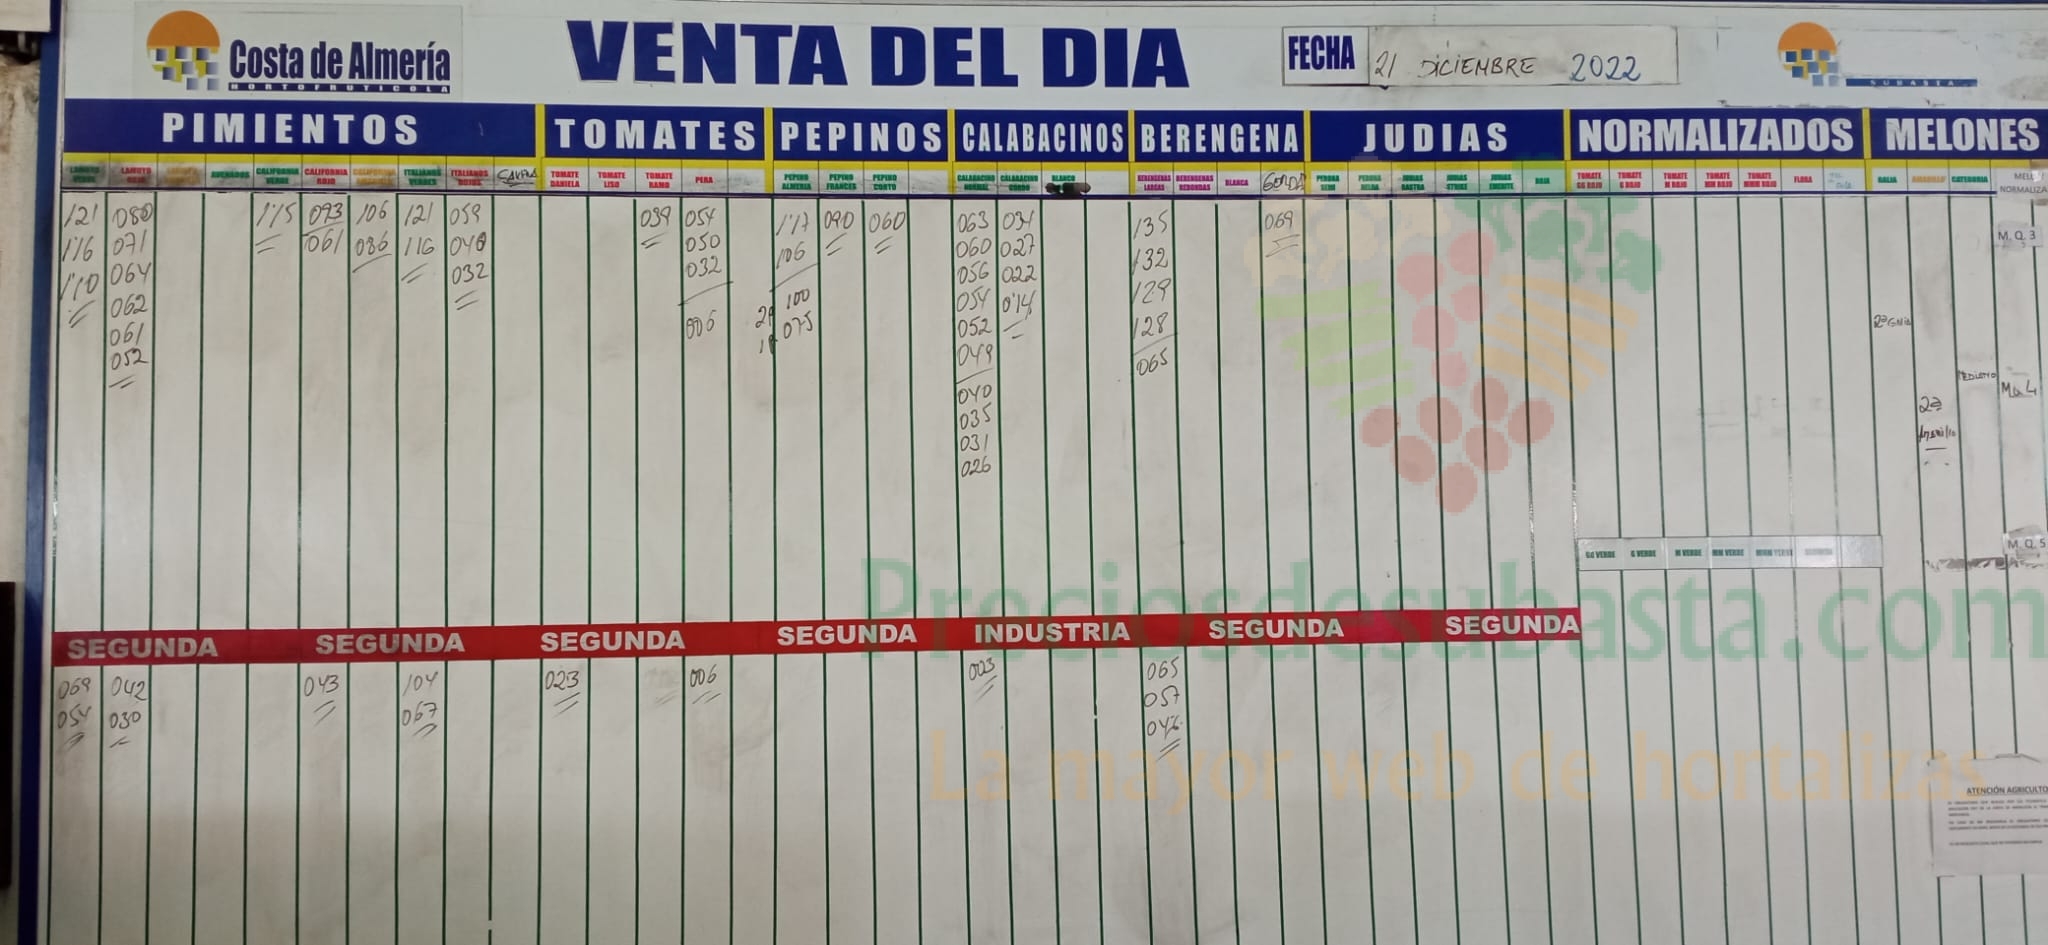 Costa de Almería
HORTOFRUTICOLA
VENTA DEL DIA
FECHA 21 DICIEMBRE 2022
SUBASTA
PIMIENTOS TOMATES PEPINOS CALABACINOS BERENGENA JUDIAS NORMALIZADOS MELONES
LAMUYO VERDE
LAMUYO ROJO
CALIFORNIA VERDE
CALIFORNIA ROJO
ITALIANOS VERDES
ITALIANOS ROJOS
TOMATE DANIELA
TOMATE LISO
TOMATE RAMO
PERA
PEPINO ALMERIA
PEPINO FRANCES
PEPINO CORTO
CALABACINO NORMAL
CALABACINO GORDO
BLANCO
BERENGENAS LARGAS
BERENGENAS REDONDAS
BLANCA
GORDA
PERONA SEMI
PERONA HELDA
JUDIAS RASTRA
JUDIAS STRIKE
JUDIAS EMERITE
ROJA
TOMATE GG ROJO
TOMATE G ROJO
TOMATE M ROJO
TOMATE MM ROJO
TOMATE MMM ROJO
FLORA
GALIA
AMARILLO
CATEGORIA
NORMALIZA
121
1'16
1'10
080
071
064
062
061
052
1'15
093
061
106
086
121
116
059
040
032
039
054
050
032
006
1'17
106
100
075
090
060
063
060
056
054
052
049
040
035
031
026
034
027
022
0'14
135
132
129
128
065
069
M. Q. 3
2ª
M. Q. 5
GG VERDE G VERDE M VERDE MM VERDE MMM VERDE
SEGUNDA SEGUNDA SEGUNDA SEGUNDA INDUSTRIA SEGUNDA SEGUNDA
069
054
042
030
043
104
067
023
006
003
065
057
Preciosdesubasta.com
La mayor web de hortalizas
ATENCIÓN AGRICULTO